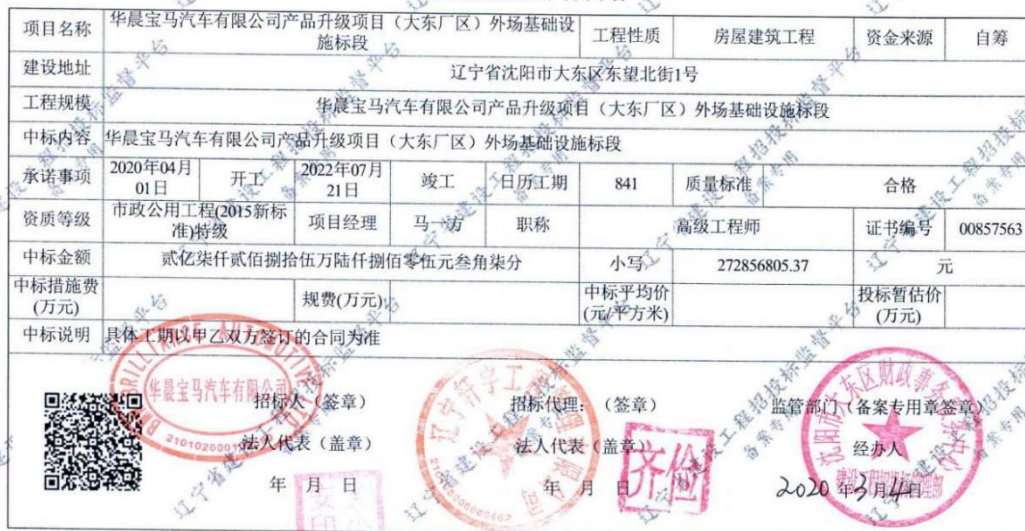 项目名称 华晨宝马汽车有限公司产品升级项目（大东厂区）外场基础设施标段 工程性质 房屋建筑工程 资金来源 自筹
建设地址 辽宁省沈阳市大东区东望北街1号
工程规模 华晨宝马汽车有限公司产品升级项目（大东厂区）外场基础设施标段
中标内容 华晨宝马汽车有限公司产品升级项目（大东厂区）外场基础设施标段
承诺事项 2020年04月01日 开工 2022年07月21日 竣工 日历工期 841 质量标准 合格
资质等级 市政公用工程(2015新标准)特级 项目经理 马一方 职称 高级工程师 证书编号 00857563
中标金额 贰亿柒仟贰佰捌拾伍万陆仟捌佰零伍元叁角柒分 小写 272856805.37 元
中标措施费(万元) 规费(万元) 中标平均价(元/平方米) 投标暂估价(万元)
中标说明 具体工期以甲乙双方签订的合同为准
华晨宝马汽车有限公司
招标人（签章） 招标代理：（签章） 监管部门（备案专用章签章）
法人代表（盖章） 法人代表（盖章） 经办人
年 月 日 年 月 日 2020年3月4日
辽宁省建设工程招投标监督平台
备案专用